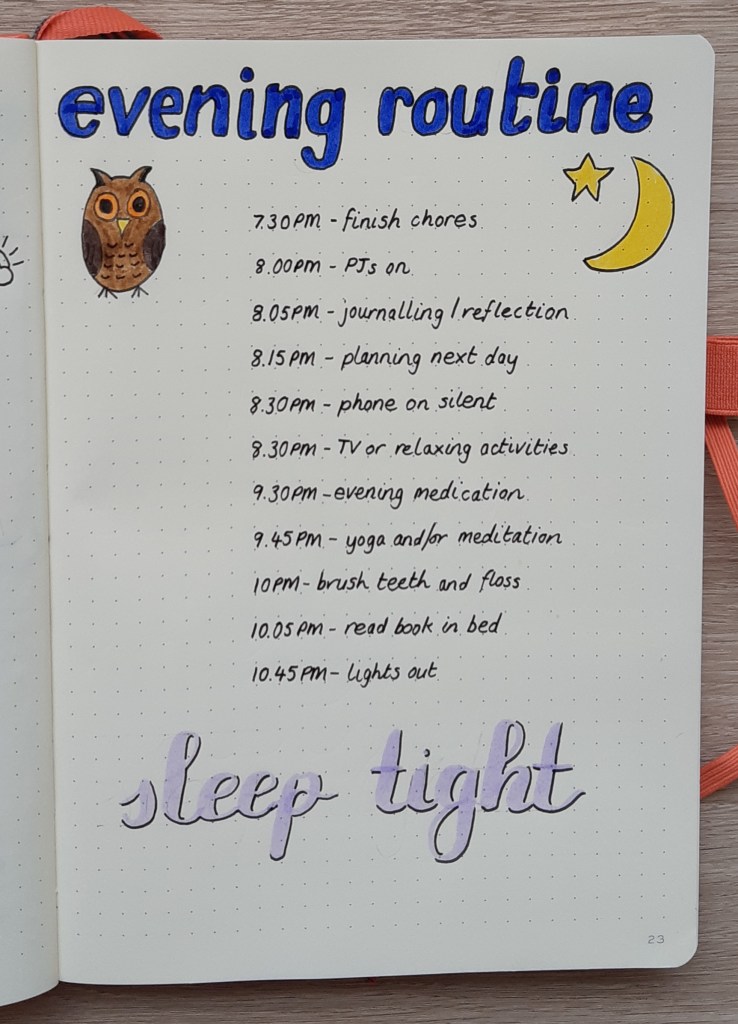 evening routine
7.30PM - finish chores
8.00PM - PJs on
8.05PM - journalling / reflection
8.15PM - planning next day
8.30PM - phone on silent
8.30PM - TV or relaxing activities
9.30PM - evening medication
9.45PM - yoga and/or meditation
10PM - brush teeth and floss
10.05PM - read book in bed
10.45PM - lights out
sleep tight
23